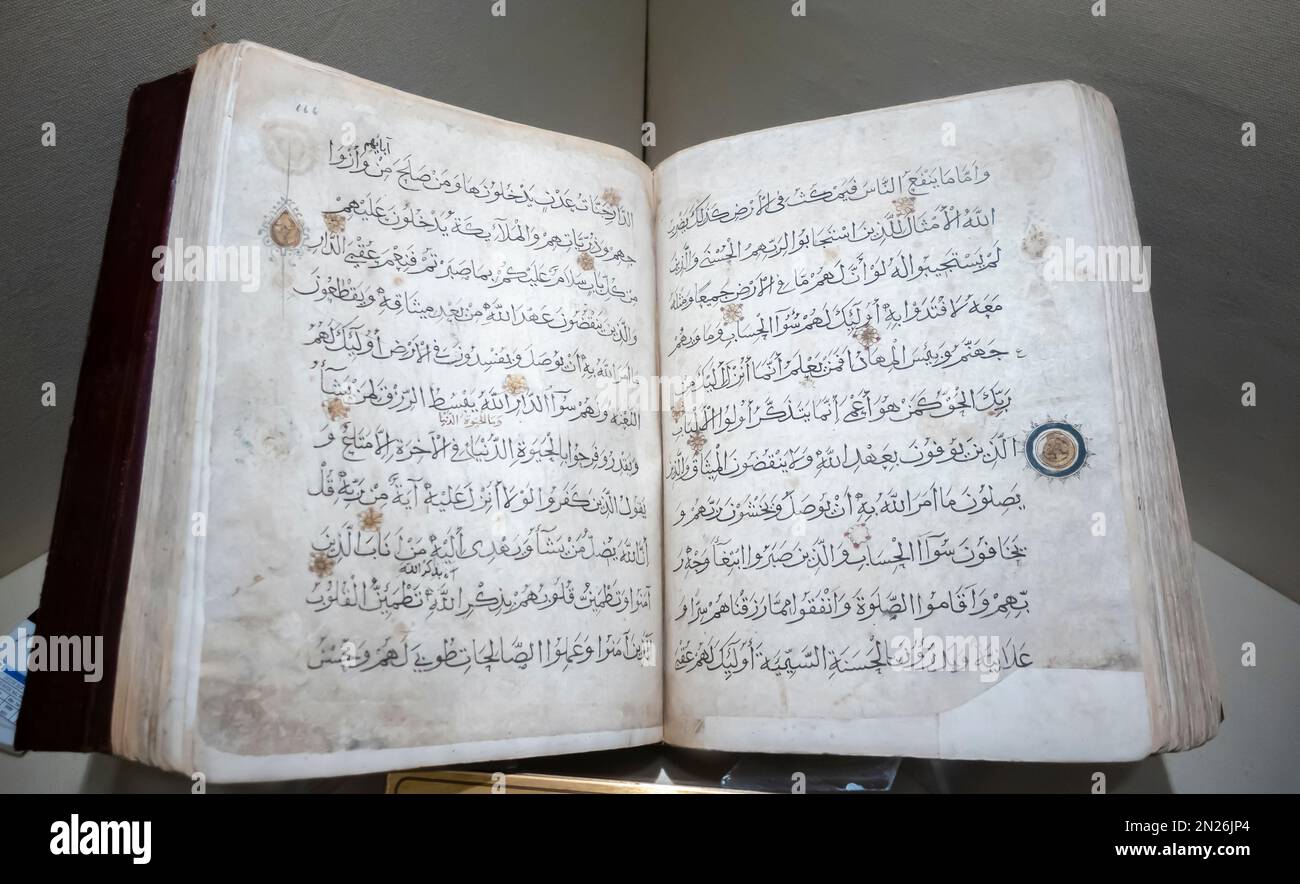 وَأَمَّا مَا يَنْفَعُ النَّاسَ فَيَمْكُثُ فِي الْأَرْضِ كَذَلِكَ يَضْرِبُ
اللَّهُ الْأَمْثَالَ لِلَّذِينَ اسْتَجَابُوا لِرَبِّهِمُ الْحُسْنَى وَالَّذِينَ
لَمْ يَسْتَجِيبُوا لَهُ لَوْ أَنَّ لَهُمْ مَا فِي الْأَرْضِ جَمِيعًا وَمِثْلَهُ
مَعَهُ لَافْتَدَوْا بِهِ أُولَئِكَ لَهُمْ سُوءُ الْحِسَابِ وَمَأْوَاهُمْ
جَهَنَّمُ وَبِئْسَ الْمِهَادُ أَفَمَنْ يَعْلَمُ أَنَّمَا أُنْزِلَ إِلَيْكَ مِنْ
رَبِّكَ الْحَقُّ كَمَنْ هُوَ أَعْمَى إِنَّمَا يَتَذَكَّرُ أُولُوا الْأَلْبَابِ
الَّذِينَ يُوفُونَ بِعَهْدِ اللَّهِ وَلَا يَنْقُضُونَ الْمِيثَاقَ وَالَّذِينَ
يَصِلُونَ مَا أَمَرَ اللَّهُ بِهِ أَنْ يُوصَلَ وَيَخْشَوْنَ رَبَّهُمْ وَ
يَخَافُونَ سُوءَ الْحِسَابِ وَالَّذِينَ صَبَرُوا ابْتِغَاءَ وَجْهِ رَ
بِّهِمْ وَأَقَامُوا الصَّلٰوةَ وَأَنْفَقُوا مِمَّا رَزَقْنَاهُمْ سِرًّا وَ
عَلَانِيَةً وَيَدْرَؤُنَ بِالْحَسَنَةِ السَّيِّئَةَ أُولَئِكَ لَهُمْ عُقْبَى
آبايهم
الدَّارِ جَنَّاتُ عَدْنٍ يَدْخُلُونَهَا وَمَنْ صَلَحَ مِنْ وَأَزْوَا
جِهِمْ وَذُرِّيَّاتِهِمْ وَالْمَلَائِكَةُ يَدْخُلُونَ عَلَيْهِمْ
مِنْ كُلِّ بَابٍ سَلَامٌ عَلَيْكُمْ بِمَا صَبَرْتُمْ فَنِعْمَ عُقْبَى الدَّارِ
وَالَّذِينَ يَنْقُضُونَ عَهْدَ اللَّهِ مِنْ بَعْدِ مِيثَاقِهِ وَيَقْطَعُونَ
مَا أَمَرَ اللَّهُ بِهِ أَنْ يُوصَلَ وَيُفْسِدُونَ فِي الْأَرْضِ أُولَئِكَ لَهُمُ
اللَّعْنَةُ وَلَهُمْ سُوءُ الدَّارِ اللَّهُ يَبْسُطُ الرِّزْقَ لِمَنْ يَشَاءُ
وما الحيوة الدنيا
وَيَقْدِرُ وَفَرِحُوا بِالْحَيٰوةِ الدُّنْيَا فِي الْآخِرَةِ إِلَّا مَتَاعٌ وَ
يَقُولُ الَّذِينَ كَفَرُوا لَوْلَا أُنْزِلَ عَلَيْهِ آيَةٌ مِنْ رَبِّهِ قُلْ
إِنَّ اللَّهَ يُضِلُّ مَنْ يَشَاءُ وَيَهْدِي إِلَيْهِ مَنْ أَنَابَ الَّذِينَ
ألا بذكر الله
آمَنُوا وَتَطْمَئِنُّ قُلُوبُهُمْ بِذِكْرِ اللَّهِ تَطْمَئِنُّ الْقُلُوبُ
الَّذِينَ آمَنُوا وَعَمِلُوا الصَّالِحَاتِ طُوبَى لَهُمْ وَحُسْنُ
alamy
Image ID: 2N26JP4
www.alamy.com